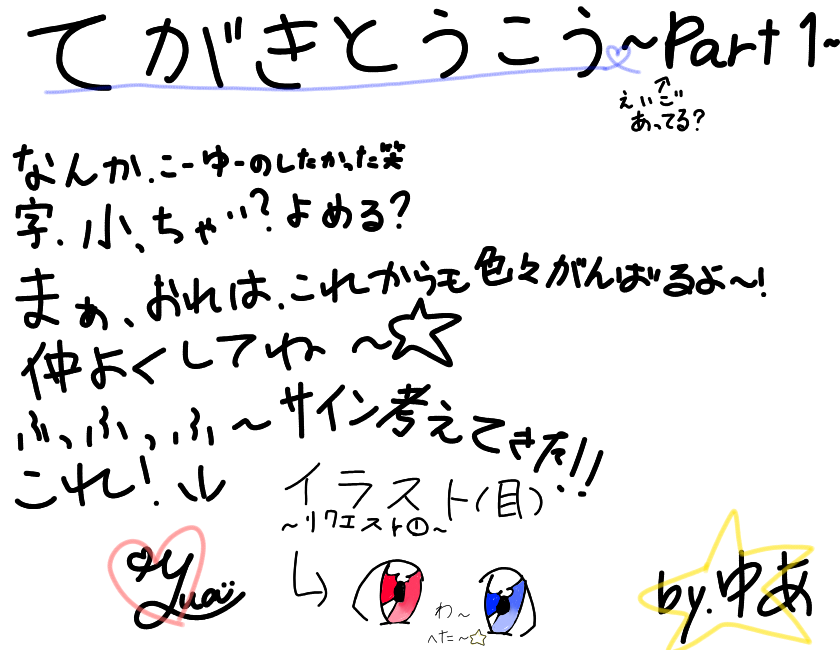 てがきとうこう～Part 1～
えいご
あってる?
なんか.こーゆーのしたかった笑
字.小、ちゃい?よめる?
まぁ、おれは.これからも色々がんばるよ～!
仲よくしてね ～☆
ふっふっふ～サイン考えてきた!!
これ!↓
イラスト(目)
～リクエスト①～
Yuaü
わ～
へた～☆
by.ゆあ